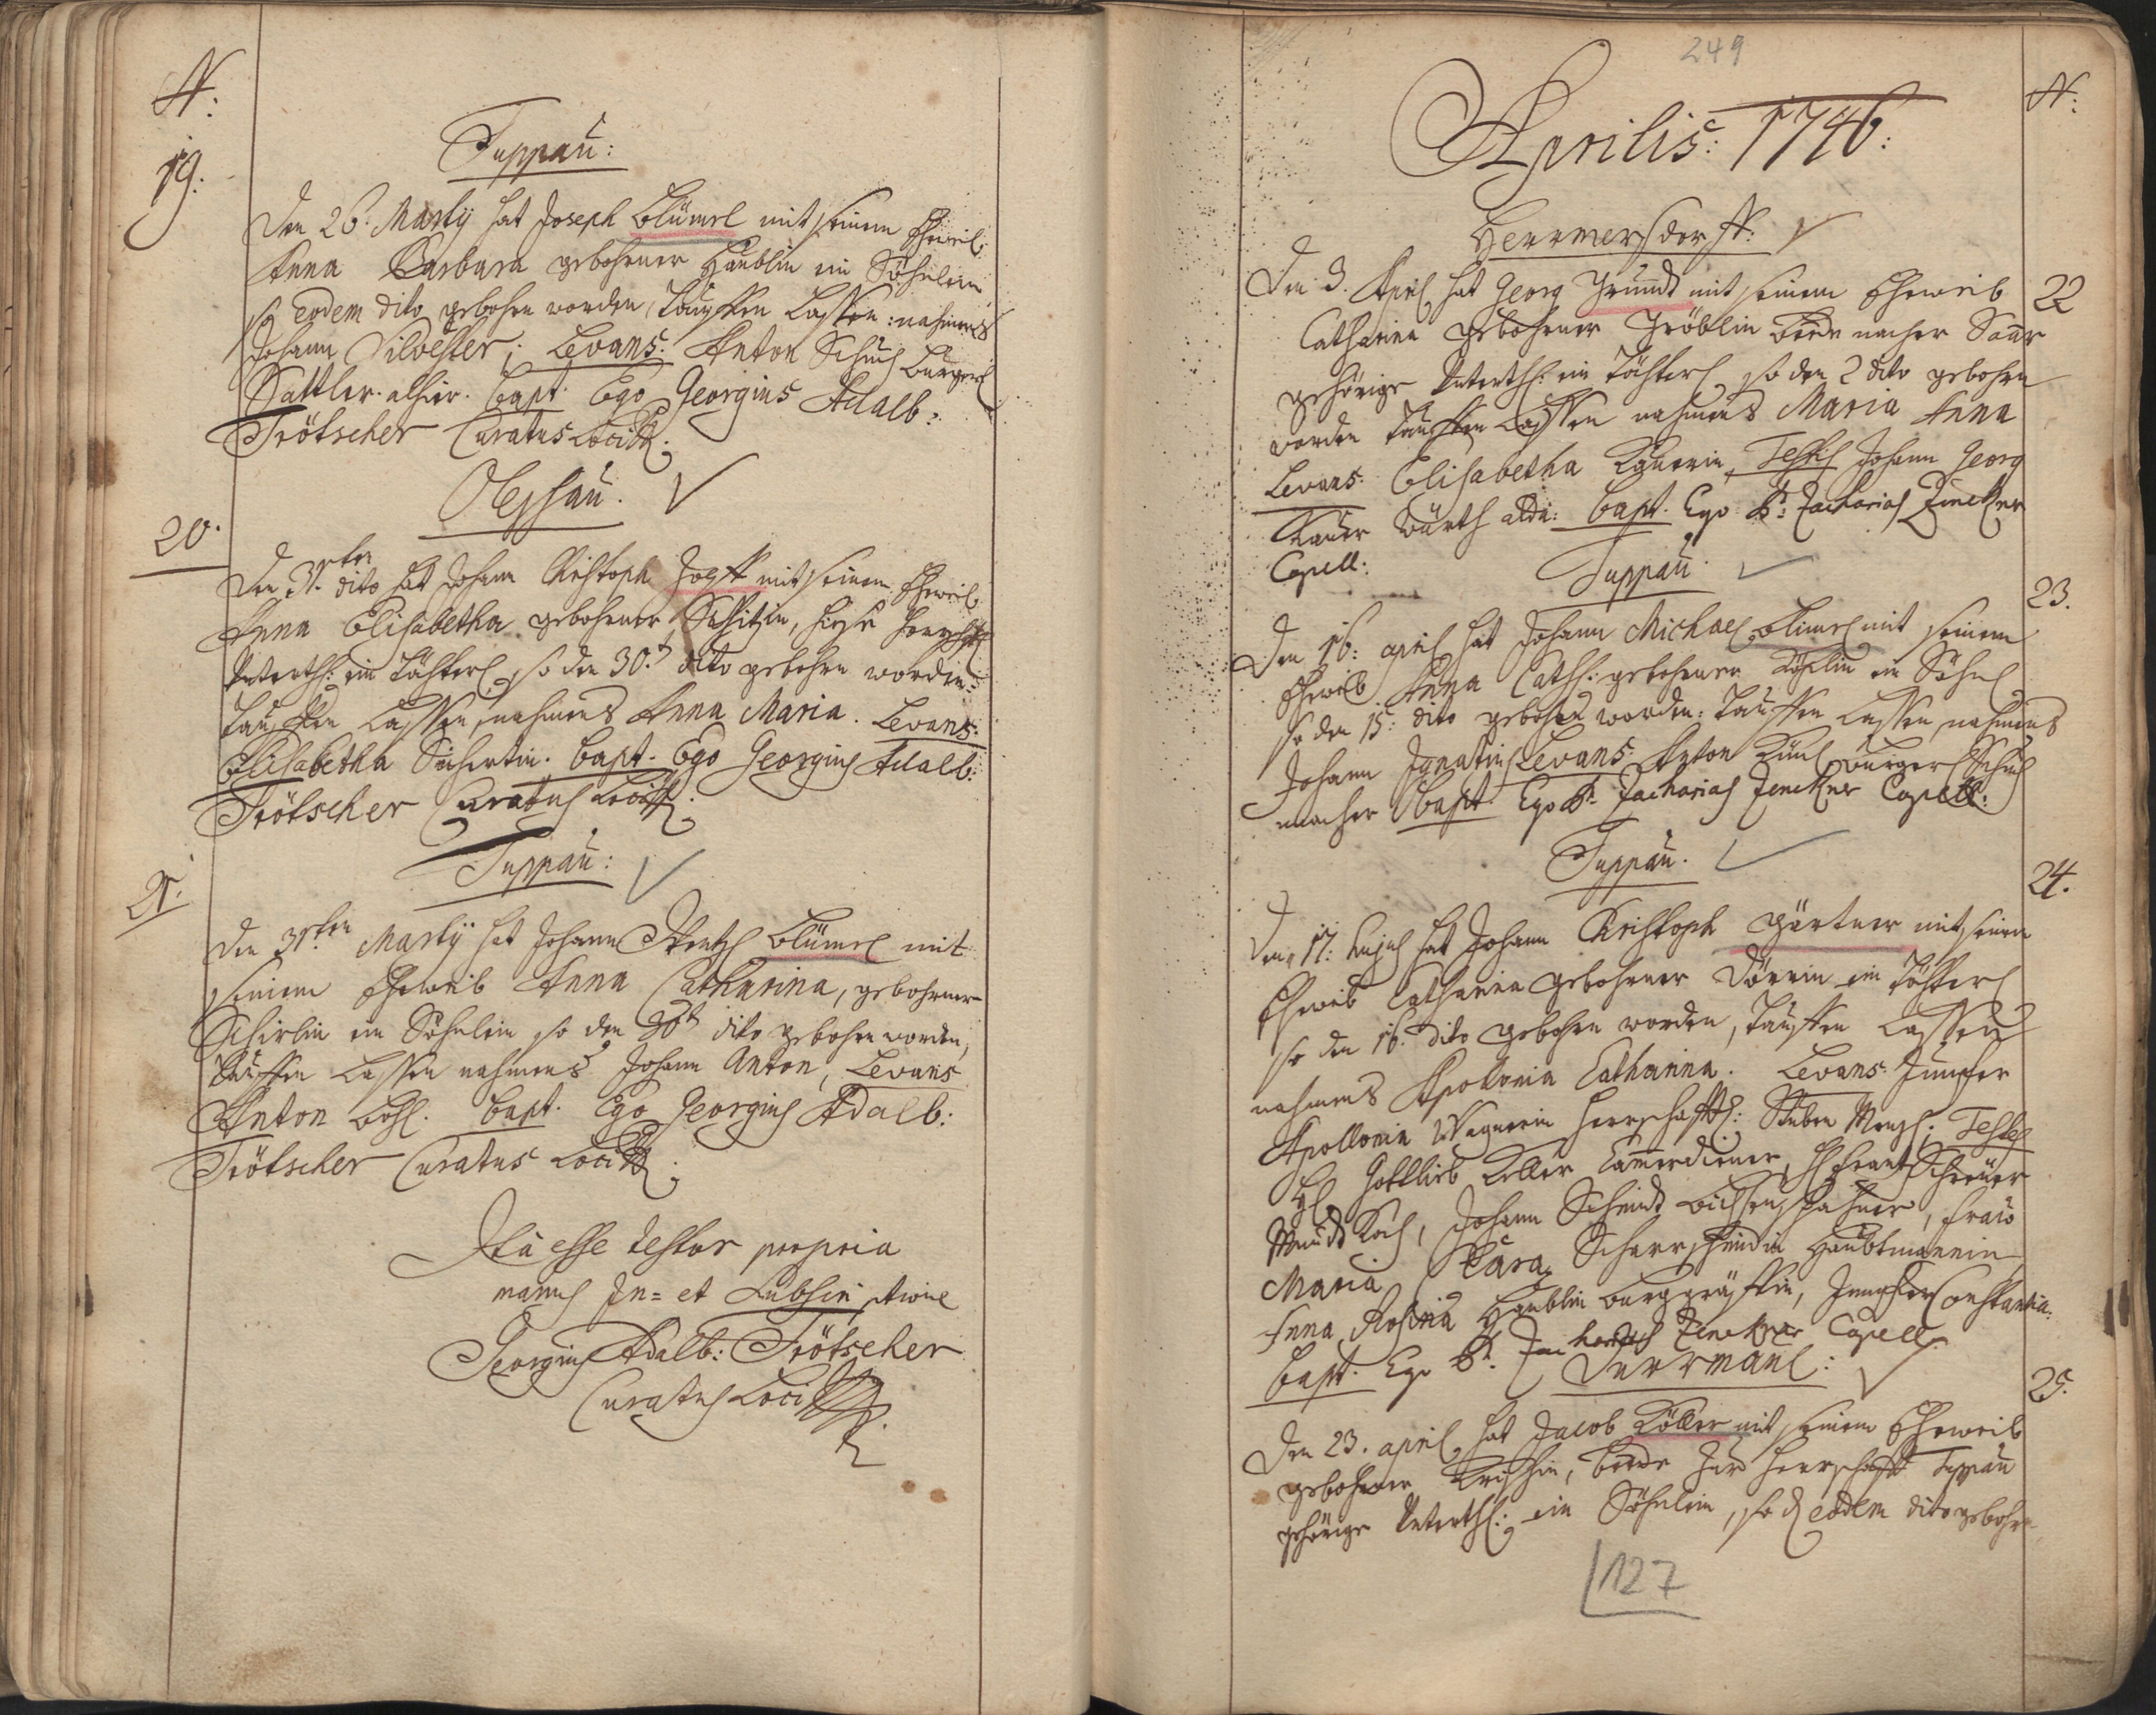 N:
19.
Tuppau:
Den 26. Martij hat Joseph Blümel mit seinem Eheweib
Anna Barbara gebohrner Haublin ein Söhnlein
so eodem dito gebohrn worden, tauffen lassen: nahmens
Johann Silvester; Levans: Anton Schuch Burgerl
Sattler alhier. Bapt: Ego Georgius Adalb:
Trötscher Curatus Loci
Oleschau.
20.
Den 31.ten dito hat Johann Christoph mit seinem Eheweib
Anna Elisabetha gebohrner hiesige Herrschafft
Unterth: ein Töchterl, so den 30.t dito gebohrn worden:
tauffen lassen, nahmens Anna Maria. Levans:
Elisabetha Bapt. Ego Georgius Adalb:
Trötscher Curatus Loci
Tuppau:
21.
Den 31ten Martij hat Johann Blümel mit
seinem Eheweib Anna Catharina, gebohrner
Schirlin ein Söhnlein so den 30t dito gebohrn worden,
tauffen lassen nahmens Johann Anton, Levans
Anton Bapt. Ego Georgius Adalb:
Trötscher Curatus Loci
Ita esse testor propria
manus In= et Subscriptione
Georgius Adalb: Trötscher
Curatus Loci
249
N:
Aprilis: 1746:
Herrmersdorff:
22
Den 3. April hat Georg Grundt mit seinem Eheweib
Catharina gebohrner Gröblin beede nacher Saar
gehörige Unterth: ein Töchterl, so den 2 dito gebohrn
worden tauffen lassen nahmens Maria Anna
Levans: Elisabetha Testis Johann Georg
Würth alda: Bapt. Ego P: Zacharias Zenckner
Capell:
Tuppau
23.
Den 16: april hat Johann Michael Blümel mit seinem
Eheweib Anna Cath: gebohrner ein Söhnl
so den 15: dito gebohrn worden: tauffen lassen, nahmens
Johann Ignatius Levans: Anton Burgerl Schuch
macher Bapt. Ego P: Zacharias Zenckner Capell:
Tuppau.
24.
Den 17: hujus hat Johann Christoph Gärtner mit seinem
Eheweib Catharina gebohrner Dörrin ein Töchterl
so den 16. dito gebohrn worden, tauffen lassen
nahmens Apollonia Catharina. Levans: Jungfer
Apollonia Wagnerin Herrschafftl: Stuben Testes
H: Gottlieb Keller Cammerdiener, H: Frantz Schreüer
Mundt Koch, Johann Schmidt Büchsenspanner, Frau
Maria Clara Scharschmidin Haubtmannin
Anna Rosina Haublin Burggräffin, Jungfer Constantia:
Bapt. Ego P: Zacharias Zenckner Capell:
Dürrmaul:
25.
Den 23. april hat Jacob Köller mit seinem Eheweib
gebohrner beede zur Herrschafft Tuppau
gehörige Unterth: ein Söhnlein, so eodem dito gebohrn
127